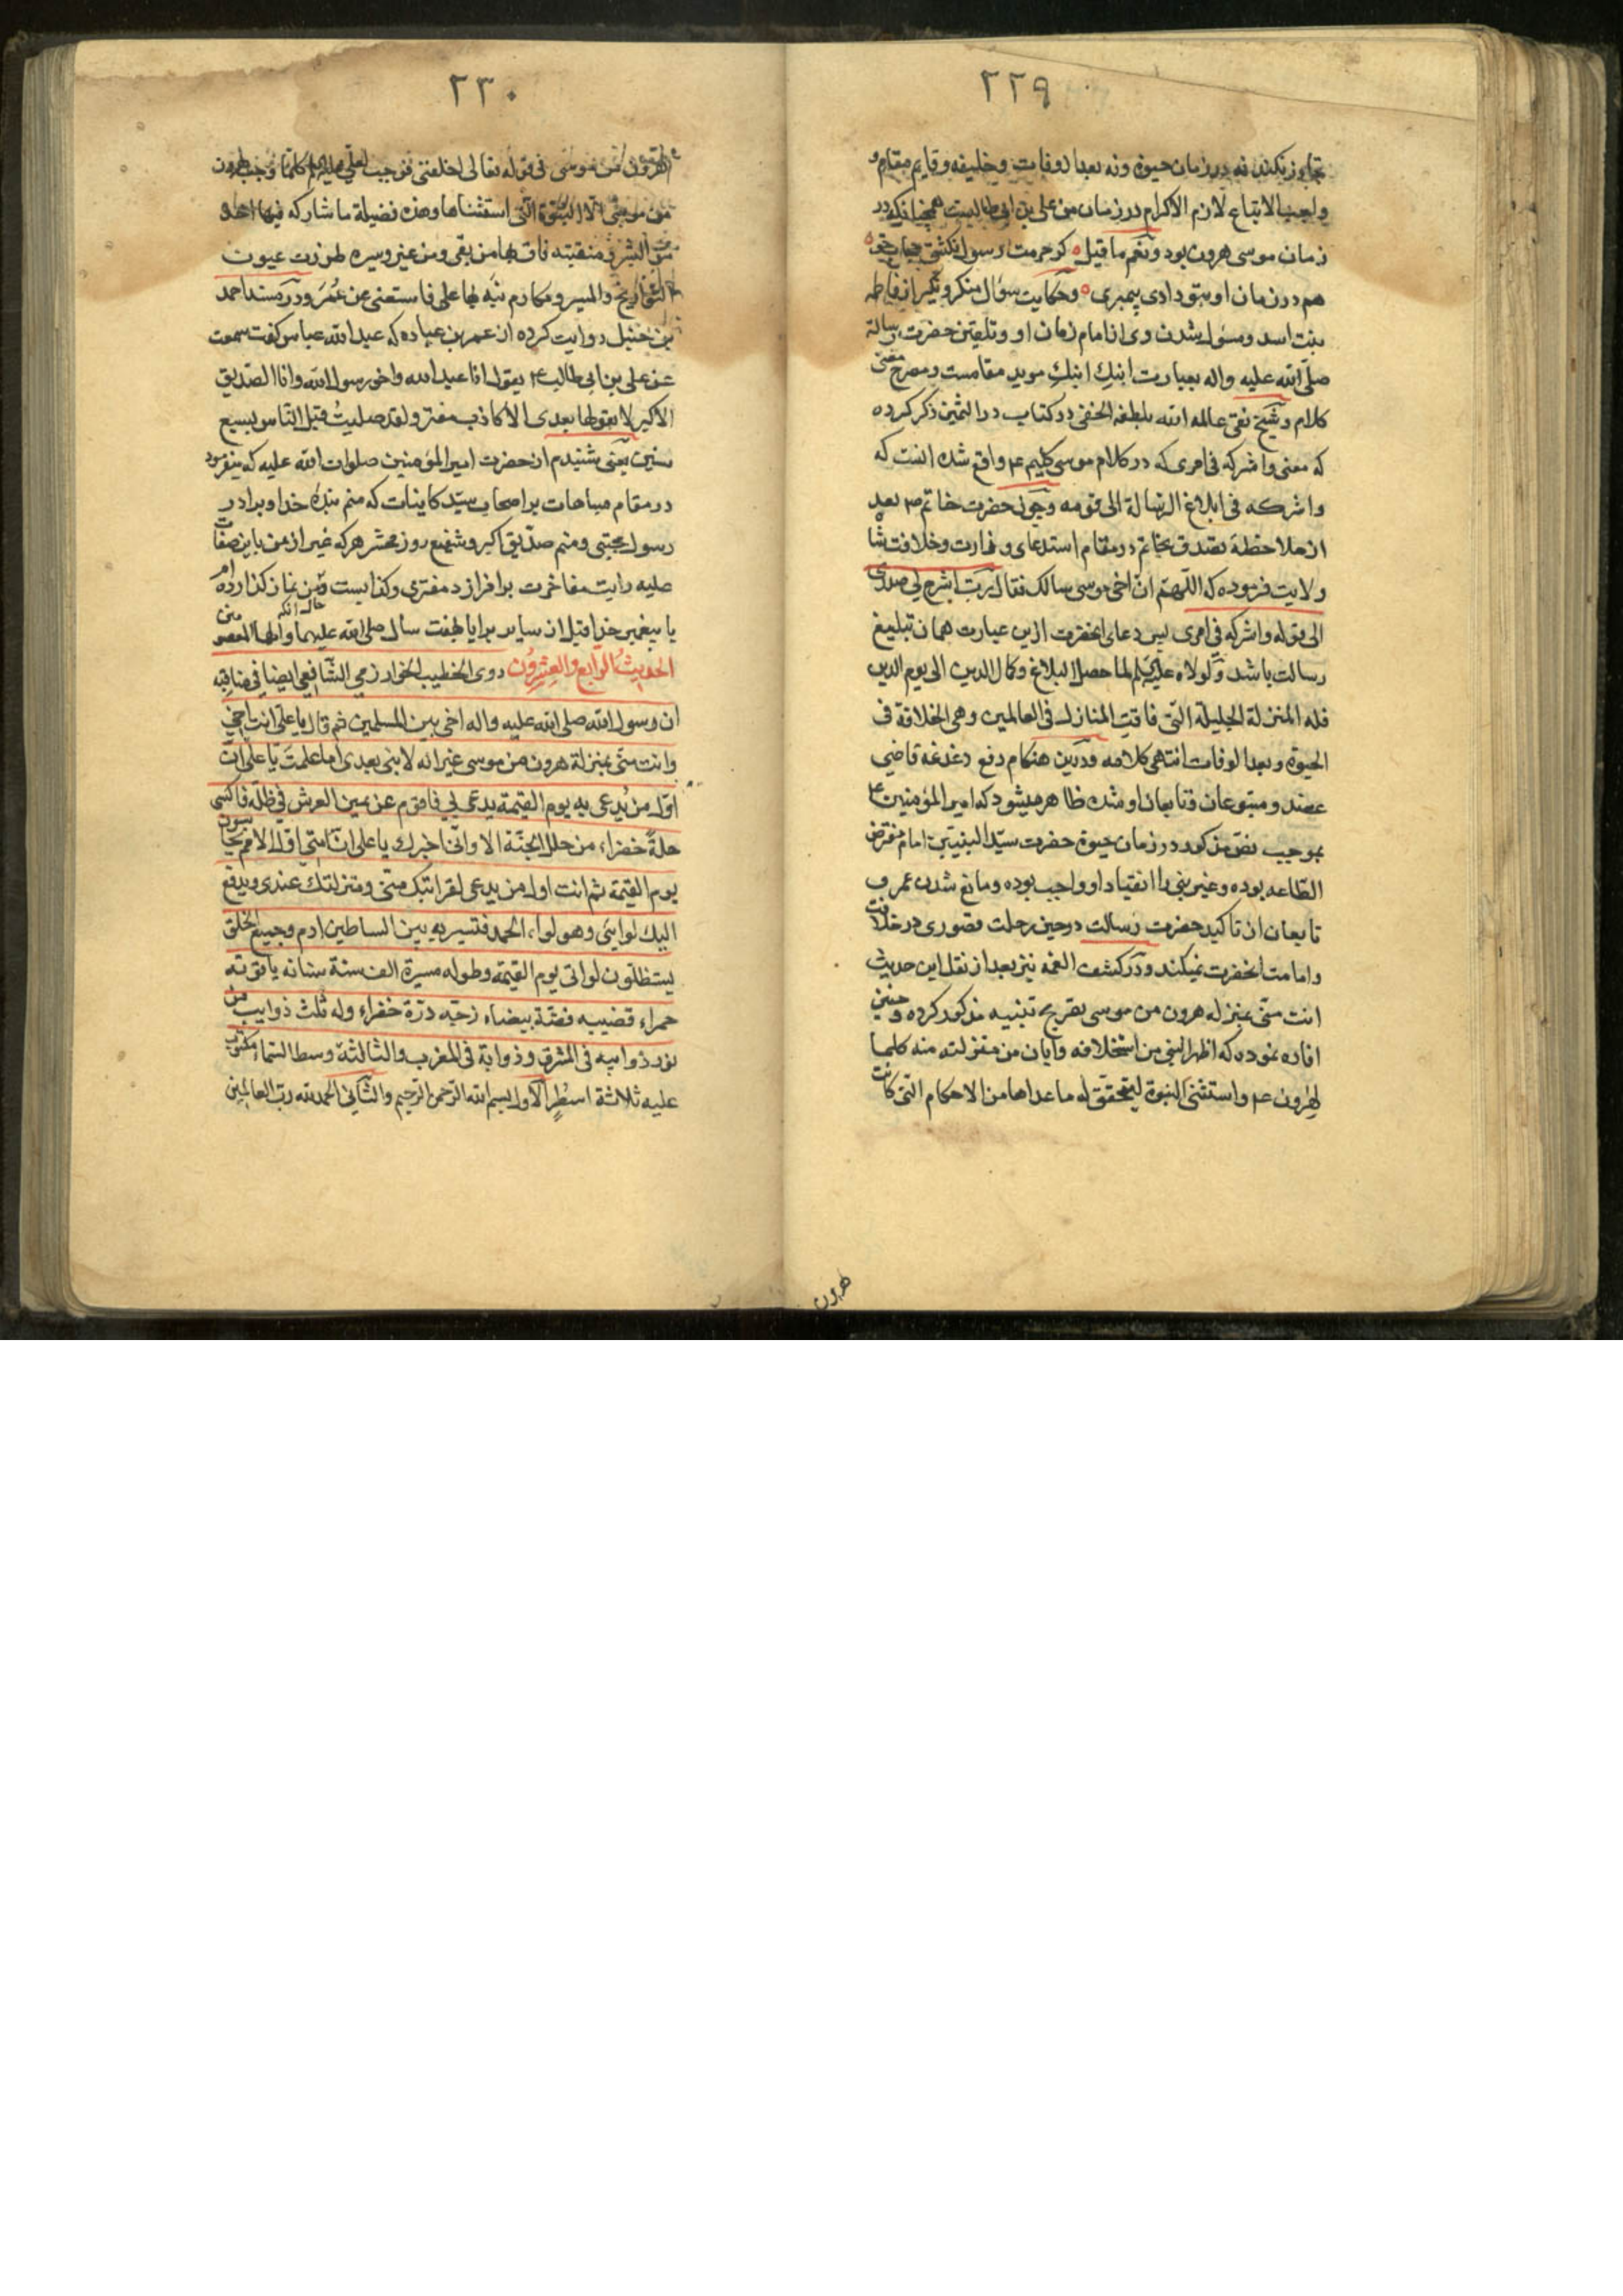 ٢٢٩
تجاوز نکند نه در زمان حیوة ونه بعد الوفات وخلیفه وقایم مقام و
واجب الاتباع لازم الاکرام در زمان من علی بن ابی طالبست همچنانکه در
زمان موسی هرون بود ونعم ما قیل کر حرمت رسول نکشتی حجاب حق
هم در زمان او بتو دادی پیمبری وحکایت سؤال منکر ونکیر از فاطمه
بنت اسد ومسؤل شدن وی از امام زمان او وتلقین حضرت رسالة
صلی الله علیه واله بعبارت ابنك ابنك موید مقامست ومصرح معنی
کلام وشیخ تقی عالمه الله بلطفه الخفی در کتاب در الثمین ذکر کرده
که معنی واشرکه فی امری که در کلام موسی کلیم ع واقع شده انست که
واشرکه فی ابلاغ الرسالة الی قومه وچون حضرت خاتم ص بعد
از ملاحظهٔ تصدق بخاتم در مقام استدعای وزارت وخلافت شاه
ولایت فرموده که اللهم ان اخی موسی سالک فقال رب اشرح لی صدری
الی قوله واشرکه فی امری پس دعای انحضرت ازین عبارت همان تبلیغ
رسالت باشد ولولاه علیه السلم لما حصل البلاغ وکمال الدین الی یوم الدین
فله المنزلة الجلیلة التی فاقت المنازل فی العالمین وهی الخلافة فی
الحیوة وبعد الوفات انتهی کلامه ودرین هنکام دفع دغدغه قاضی
عضد ومتبوعان وتابعان او شده ظاهر میشود که امیر المؤمنین ع
بموجب نص مذکور در زمان حیوة حضرت سید النبیین امام مفترض
الطاعه بوده وغیر نبی را انقیاد او واجب بوده ومانع شدن عمر و
تابعان از تاکید حضرت رسالت در حین رحلت قصوری در خلافت
وامامت انحضرت نمیکند ودر کشف الغمه نیز بعد از نقل این حدیث
انت منی بمنزله هرون من موسی بتقریح تنبیه مذکور کرده وچنین
افاده نموده که اظهر النبی من استخلافه وابان من منزلته منه کلما
لهرون ع واستثنی النبوة لیتحقق له ما عداها من الاحکام التی کانت
هرون
٢٣٠
لهرون من موسی فی قوله تعالی اخلفنی فوجب لعلی علیه السلم کلما وجب لهرون
من موسی الا النبوة التی استثناها وهذه فضیلة ما شارکه فیها احد و
من الشرف منقبته فاق بها من بقی ومن غبر وسیره طرزت عیون
التواریخ والسیر ومکارم نبه لها علی فاستغنی عن عمر ودر مسند احمد
بن حنبل روایت کرده از عمر بن عباده که عبد الله عباس کفت سمعت
عن علی بن ابی طالب ع یقول انا عبد الله واخو رسول الله وانا الصدیق
الاکبر لا یقولها بعدی الا کاذب مفتر ولقد صلیت قبل الناس بسبع
سنین یعنی شنیدم از حضرت امیر المؤمنین صلوات الله علیه که میفرمود
در مقام مباهات بر اصحاب سید کاینات که منم بندهٔ خدا وبرادر
رسول مجتبی ومنم صدیق اکبر وشفیع روز محشر هر که غیر از من باین صفات
علیه رایت مفاخرت بر افرازد مفتری وکذابست ومن نماز کذارده ام
با پیغمبر خدا قبل از سایر برایا بهفت سال صلی الله علیهما والهما
الحدیث الرابع والعشرون روی الخطیب الخوارزمی الشافعی ایضا فی مناقبه
ان رسول الله صلی الله علیه واله اخی بین المسلمین ثم قال یا علی انت اخی
وانت منی بمنزلة هرون من موسی غیر انه لا نبی بعدی اما علمت یا علی ان
اول من یدعی به یوم القیمة یدعی بی فاقوم عن یمین العرش فی ظله فاکسی
حلة خضراء من حلل الجنة الا وانی اخبرك یا علی ان امتی اول الامم یحاسبون
یوم القیمة ثم انت اول من یدعی لقرابتك منی ومنزلتك عندی ویدفع
الیك لوایئ وهو لواء الحمد فتسیر به بین السماطین ادم وجمیع الخلق
یستظلون لوائی یوم القیمة وطوله مسیرة الف سنة سنانه یاقوته
حمراء قضیبه فضة بیضاء زجه درة خضراء وله ثلث ذوایب من
نور ذوابه فی المشرق وذوابة فی المغرب والثالثة وسط السماء مکتوب
علیه ثلاثة اسطر الاول بسم الله الرحمن الرحیم والثانی الحمد لله رب العالمین